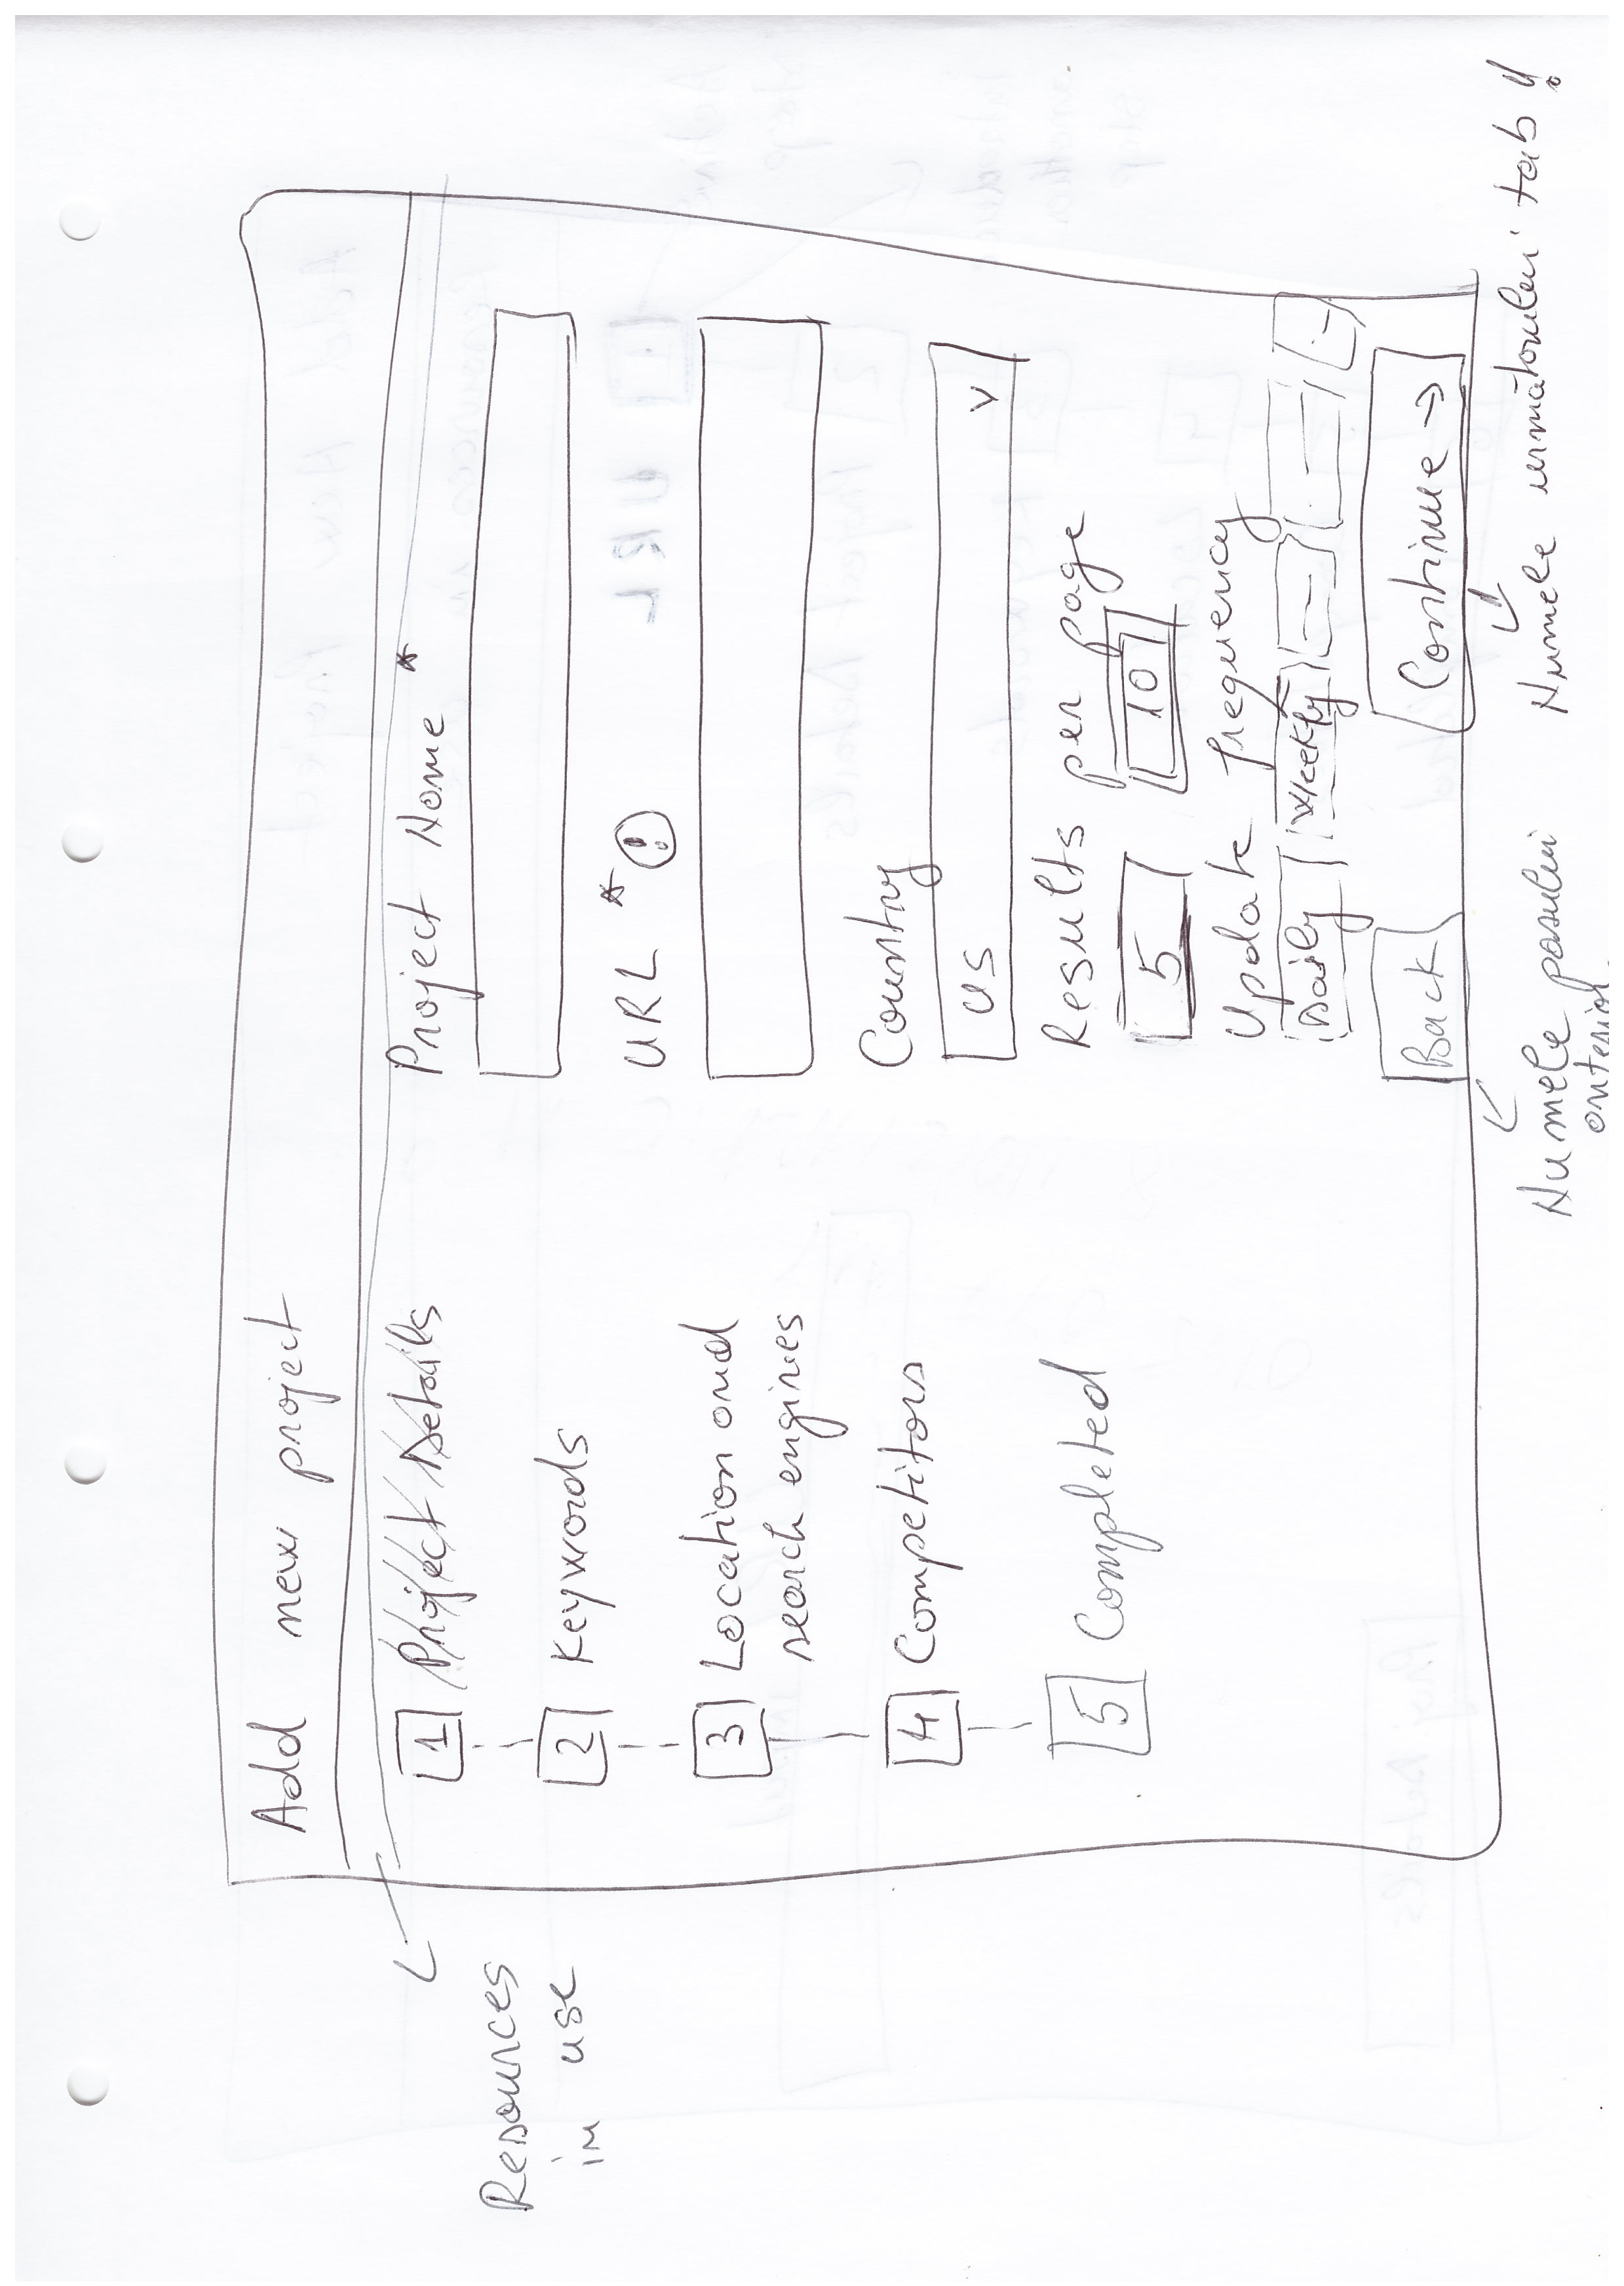 Add new project
Resources
in use
1 Project Details
2 Keywords
3 Location and
search engines
4 Competitors
5 Completed
Project Name *
URL * !
Country
US v
Results per page
5 10
Update frequency
Daily Weekly
Back Continue →
Numele pasului
anterior
Numele următorului tab!